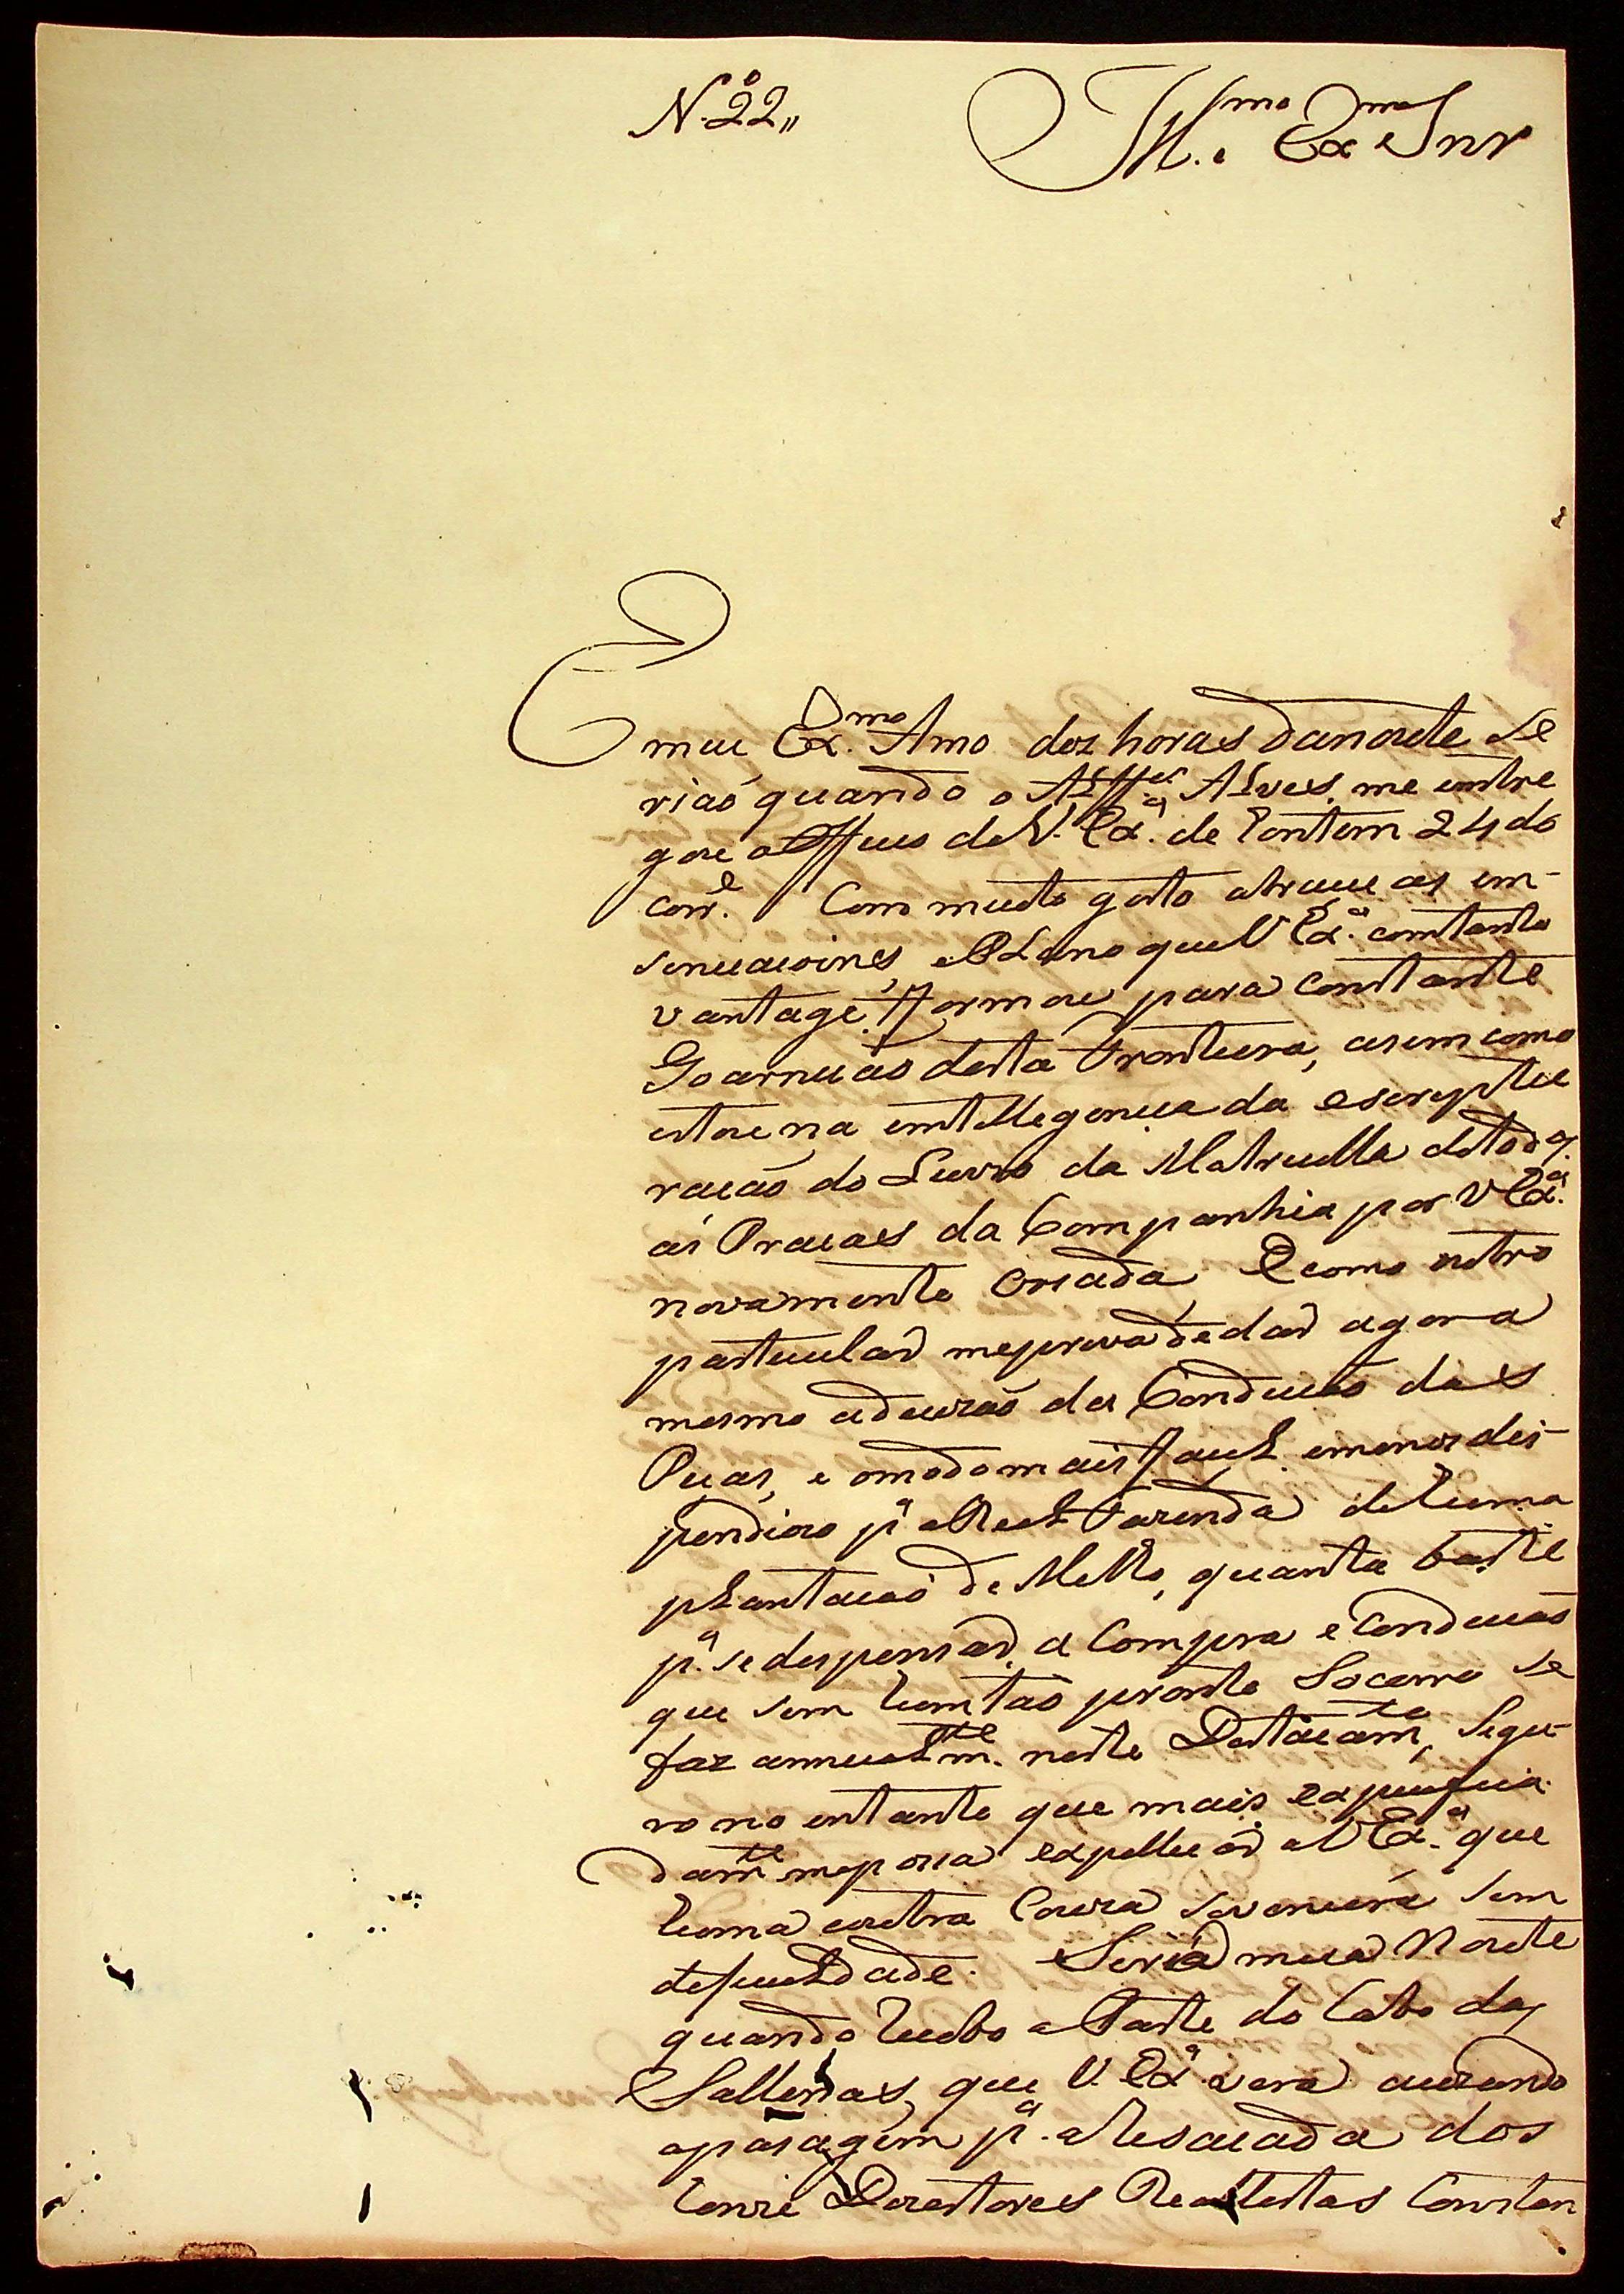 N.º 22,,
Ill.mo Ex.mo Snr
Meu Ex.mo Amo dez horas danoite Se
riaõ quando o Alffes Alves me entre
gou o Offucio de V. Ex.ª de hontem 24 do
corr.e Com muito gosto abracei as in-
sinuacoines, e Plano que V Ex.ª com tanta
vantage fformou para constante
Goarnicaõ desta Fronteira, asim como
estou na intellegencia da escreptu
racaõ do Livro da Matriculla detodas
as Pracas da Companhia por V Ex.ª
novamente criada. E como outro
particular meprivadedar agora
mesmo aducizaõ da Conducaõ das
Picas, e omodo mais ffacil emenos dis-
pendiozo p.ª a Real Fazenda dehuma
plantacaõ de Milho, quanta baste
p.ª se despensar, a Compra e Conducaõ
que sem hum taõ pronto Socorro se
faz annualm.te neste Destacam.to, Sigu-
ro no entanto que mais expecefica
dam.te mepocia expellicar a V Ex.ª que
huma e outra Couza sevencerá sem
deficuldade. Seria meia Noite
quando recebo aParte do Cabo das
Sallenas, que V. Ex.ª verá auzando
apasagem p.ª a Resacada dos
honze Dezertores Realistas Constan